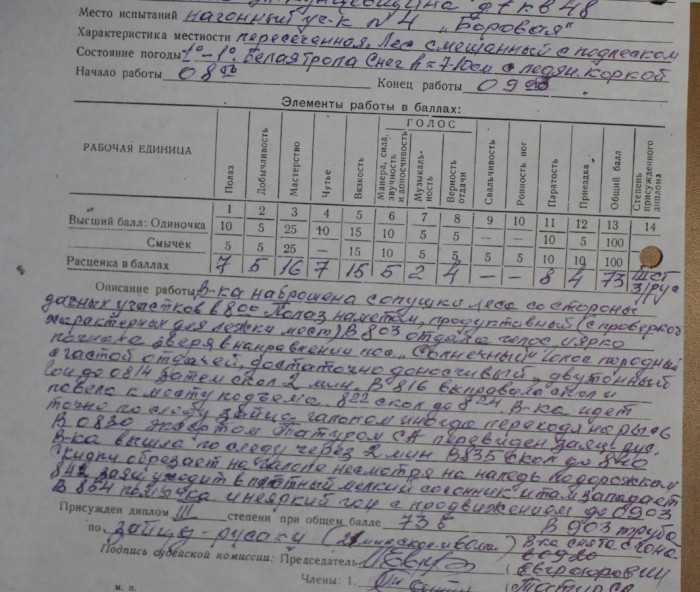 Место испытаний нагонный уч-к № 4 „Боровая"
Характеристика местности пересеченная. Лес смешанный с подлеском
Состояние погоды 1°-1°. Белая тропа Снег h=7-10см с ледян. коркой
Начало работы 08 00 Конец работы 09 20
Элементы работы в баллах:
РАБОЧАЯ ЕДИНИЦА Полаз Добычливость Мастерство Чутье Вязкость ГОЛОС Манера, сила, звучность и доносчивость Музыкальность Верность отдачи Свальчивость Ровность ног Паратость Приездка Общий балл Степень присужденного диплома
1 2 3 4 5 6 7 8 9 10 11 12 13 14
Высший балл: Одиночка 10 5 25 10 15 10 5 5 — — 10 5 100
Смычек 5 5 25 — 15 10 5 5 5 5 10 10 100
Расценка в баллах 7 5 16 7 15 5 2 4 — — 8 4 73 III ст з/рус
Описание работы В-ка наброшена с опушки леса со стороны
дачных участков в 800. Полаз наметом, продуктивный (с проверкой
характерных для лежки мест) В 803 отдала голос и ярко
погнала зверя в направлении пос. „Солнечный" Голос породный
с частой отдачей, достаточно доносчивый, двутонный
Гон до 0814 затем скол 2 мин. В 816 выправила скол и
повела к месту подъема. 822 скол до 824 В-ка идет
точно по следу зайца галопом иногда переходя на рысь
В 0830 экспертом СА перевиден заяц рус.
В-ка вышла по следу через 2 мин В 835 скол до 840
Скидку обрезает на галопе несмотря на наледь по дорожкам
842 заяц уходит в плотный мелкий сосонник и там западает
В 854 и неяркий гон с продвижением до 0903
Присужден диплом III степени при общем балле 73 б В 903 труба
по зайцу-русаку В-ка снята с гона
Подпись судейской комиссии: Председатель
Члены: 1.
м. п.